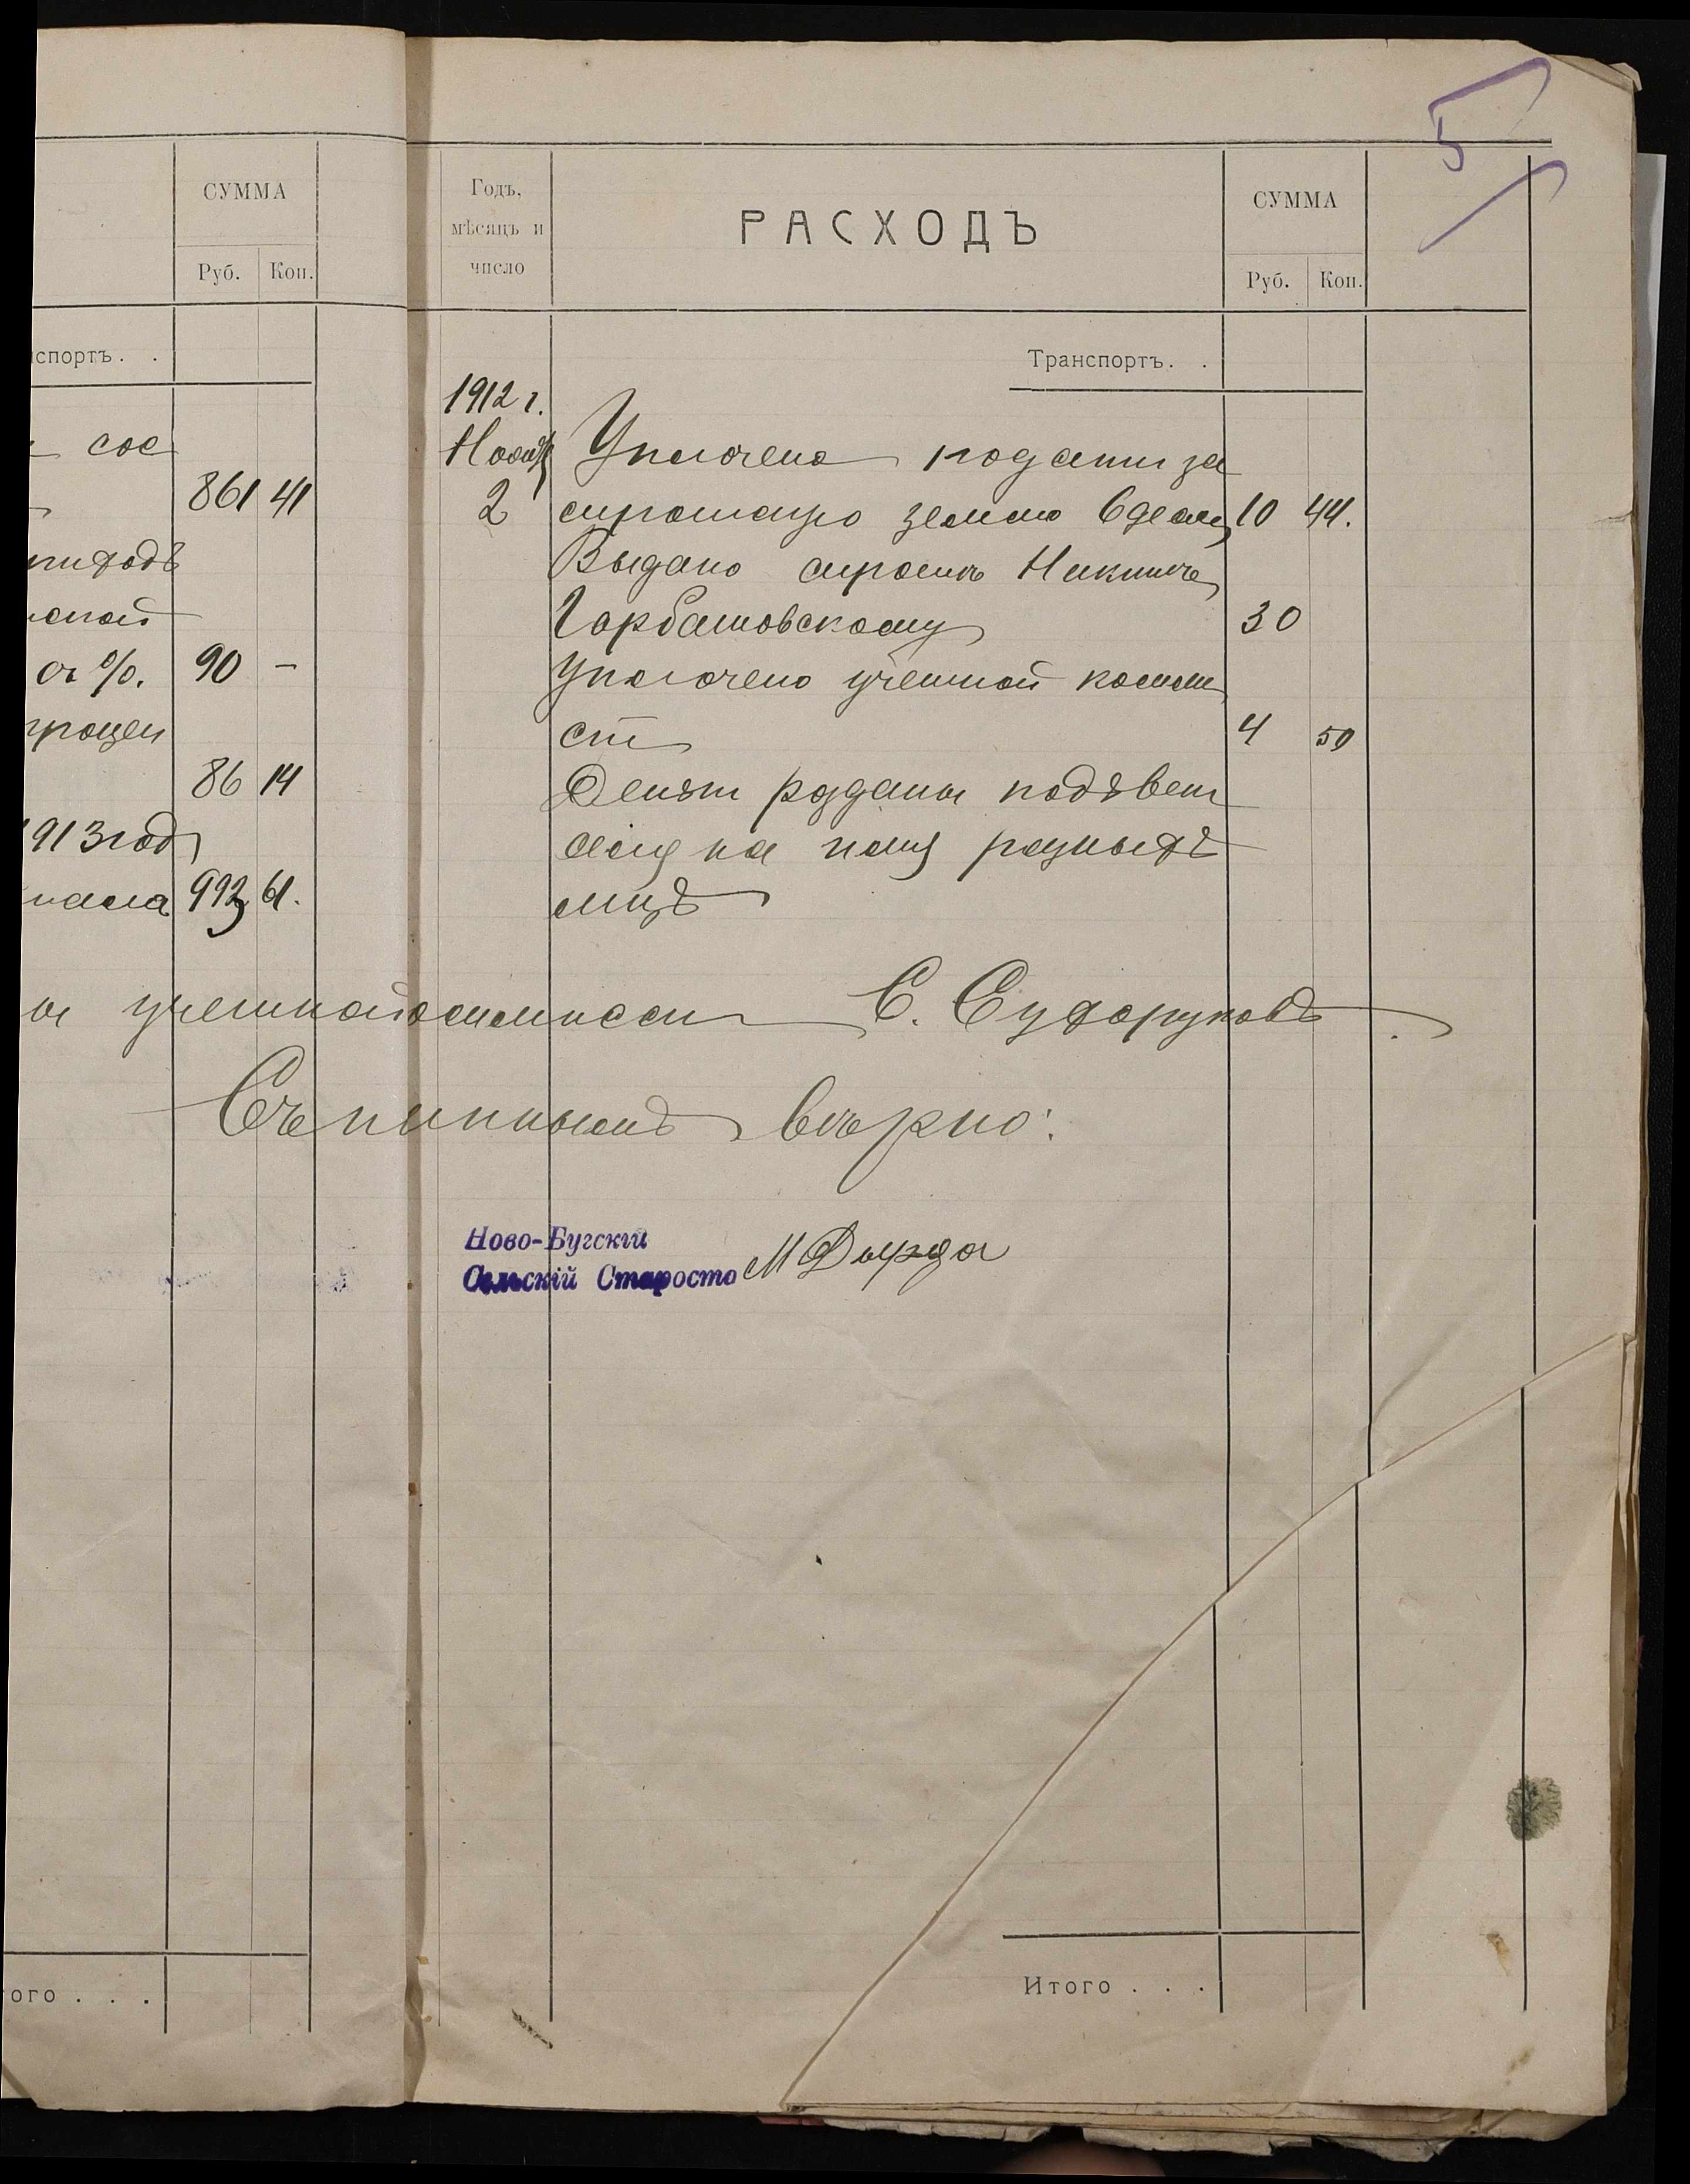 5
СУММА
Руб. Коп.
спортъ. .
сос
861 41
ской
% 90 -
процен
86 14
1913 год
993 61.
ого . . .
Годъ,
мѣсяцъ и
число
РАСХОДЪ
СУММА
Руб. Коп.
Транспортъ. .
1912 г.
Нояб
2
Уплочено подати за
сиротскую землю 10 44.
Выдано сиротѣ Никитѣ
Горбатовскому 30
Уплочено учетной комми
сіи 4 50
Деньги розданы подъ вет
на разныхъ
лицъ
учетной коммиссіи С. Сухоруковъ
Съ подлиннымъ вѣрно:
Ново-Бугскій
Сельскій Староста М Дырда
Итого . . .